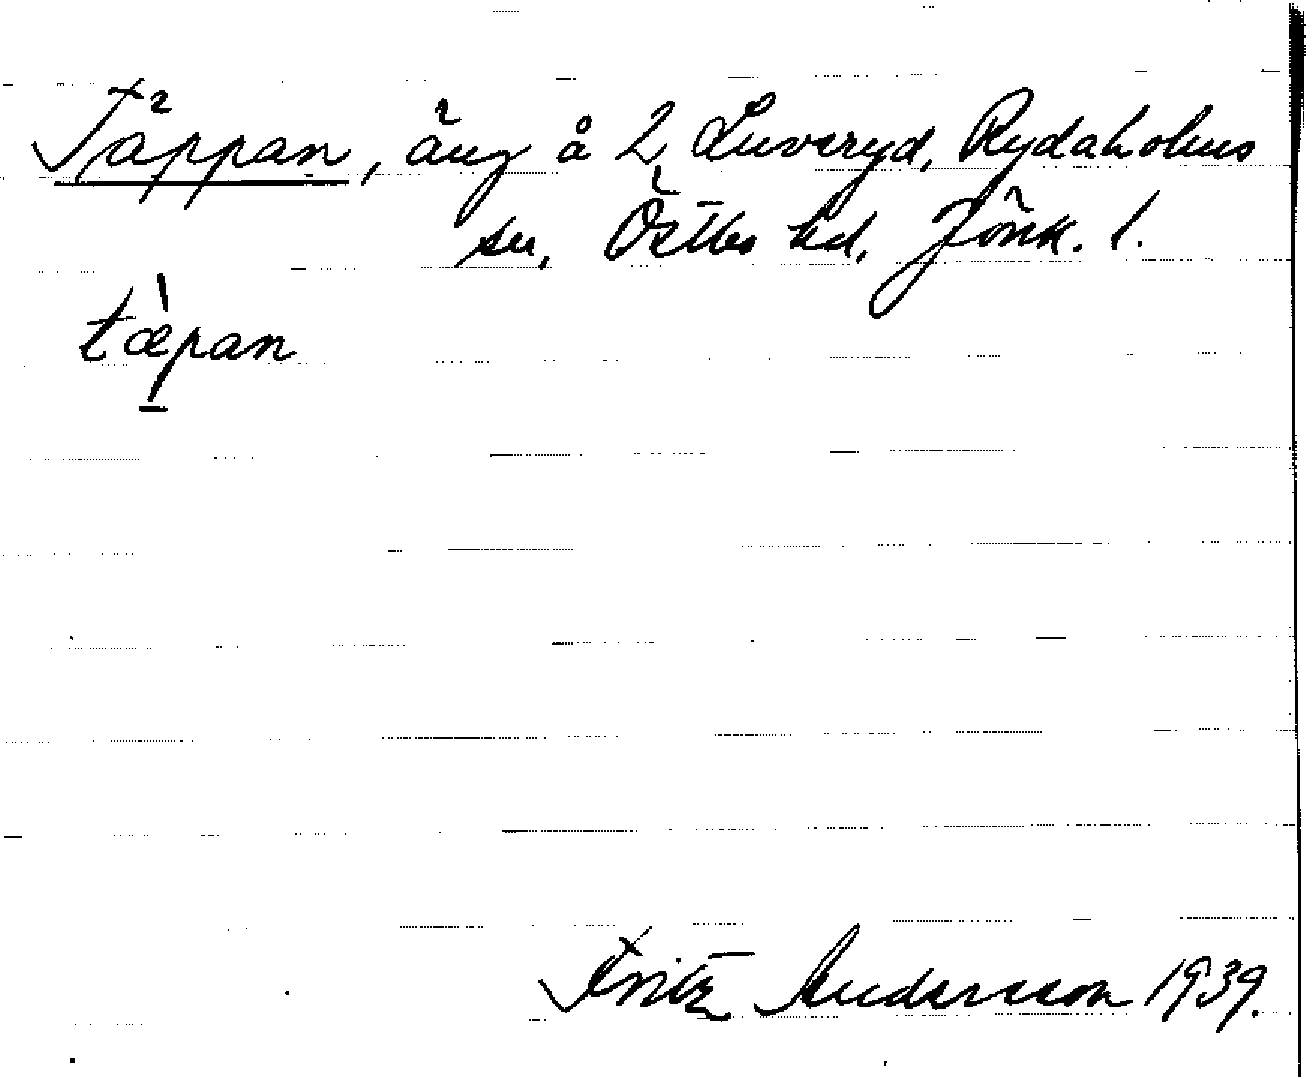 Täppan, äng å 2 Luvsryd, Rydaholms
sn, Östbo hd, Jönk. l.
tæ̀p̱an
Fritz Andersson 1939.